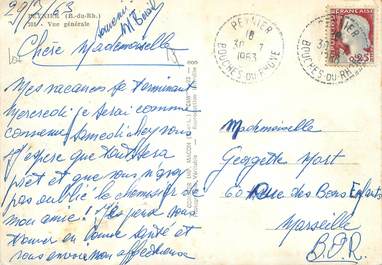 29/7/63
PEYNIER (B.-du-Rh.)
Vue générale
souvenir
Chère Mademoiselle
Mes vacances se terminant
Mercredi je serai comme
convenu Samedi chez vous
J'espère que tout sera
prêt et que vous n'avez
pas oublié le chemisier de
mon amie. J'espère vous
trouver en bonne santé et
vous envoie mon affectueux
PEYNIER
18
30 - 7
1963
BOUCHES DU RHONE
Mademoiselle
Georgette Mort
60 Rue des Bons Enfants
Marseille
B.D.R.